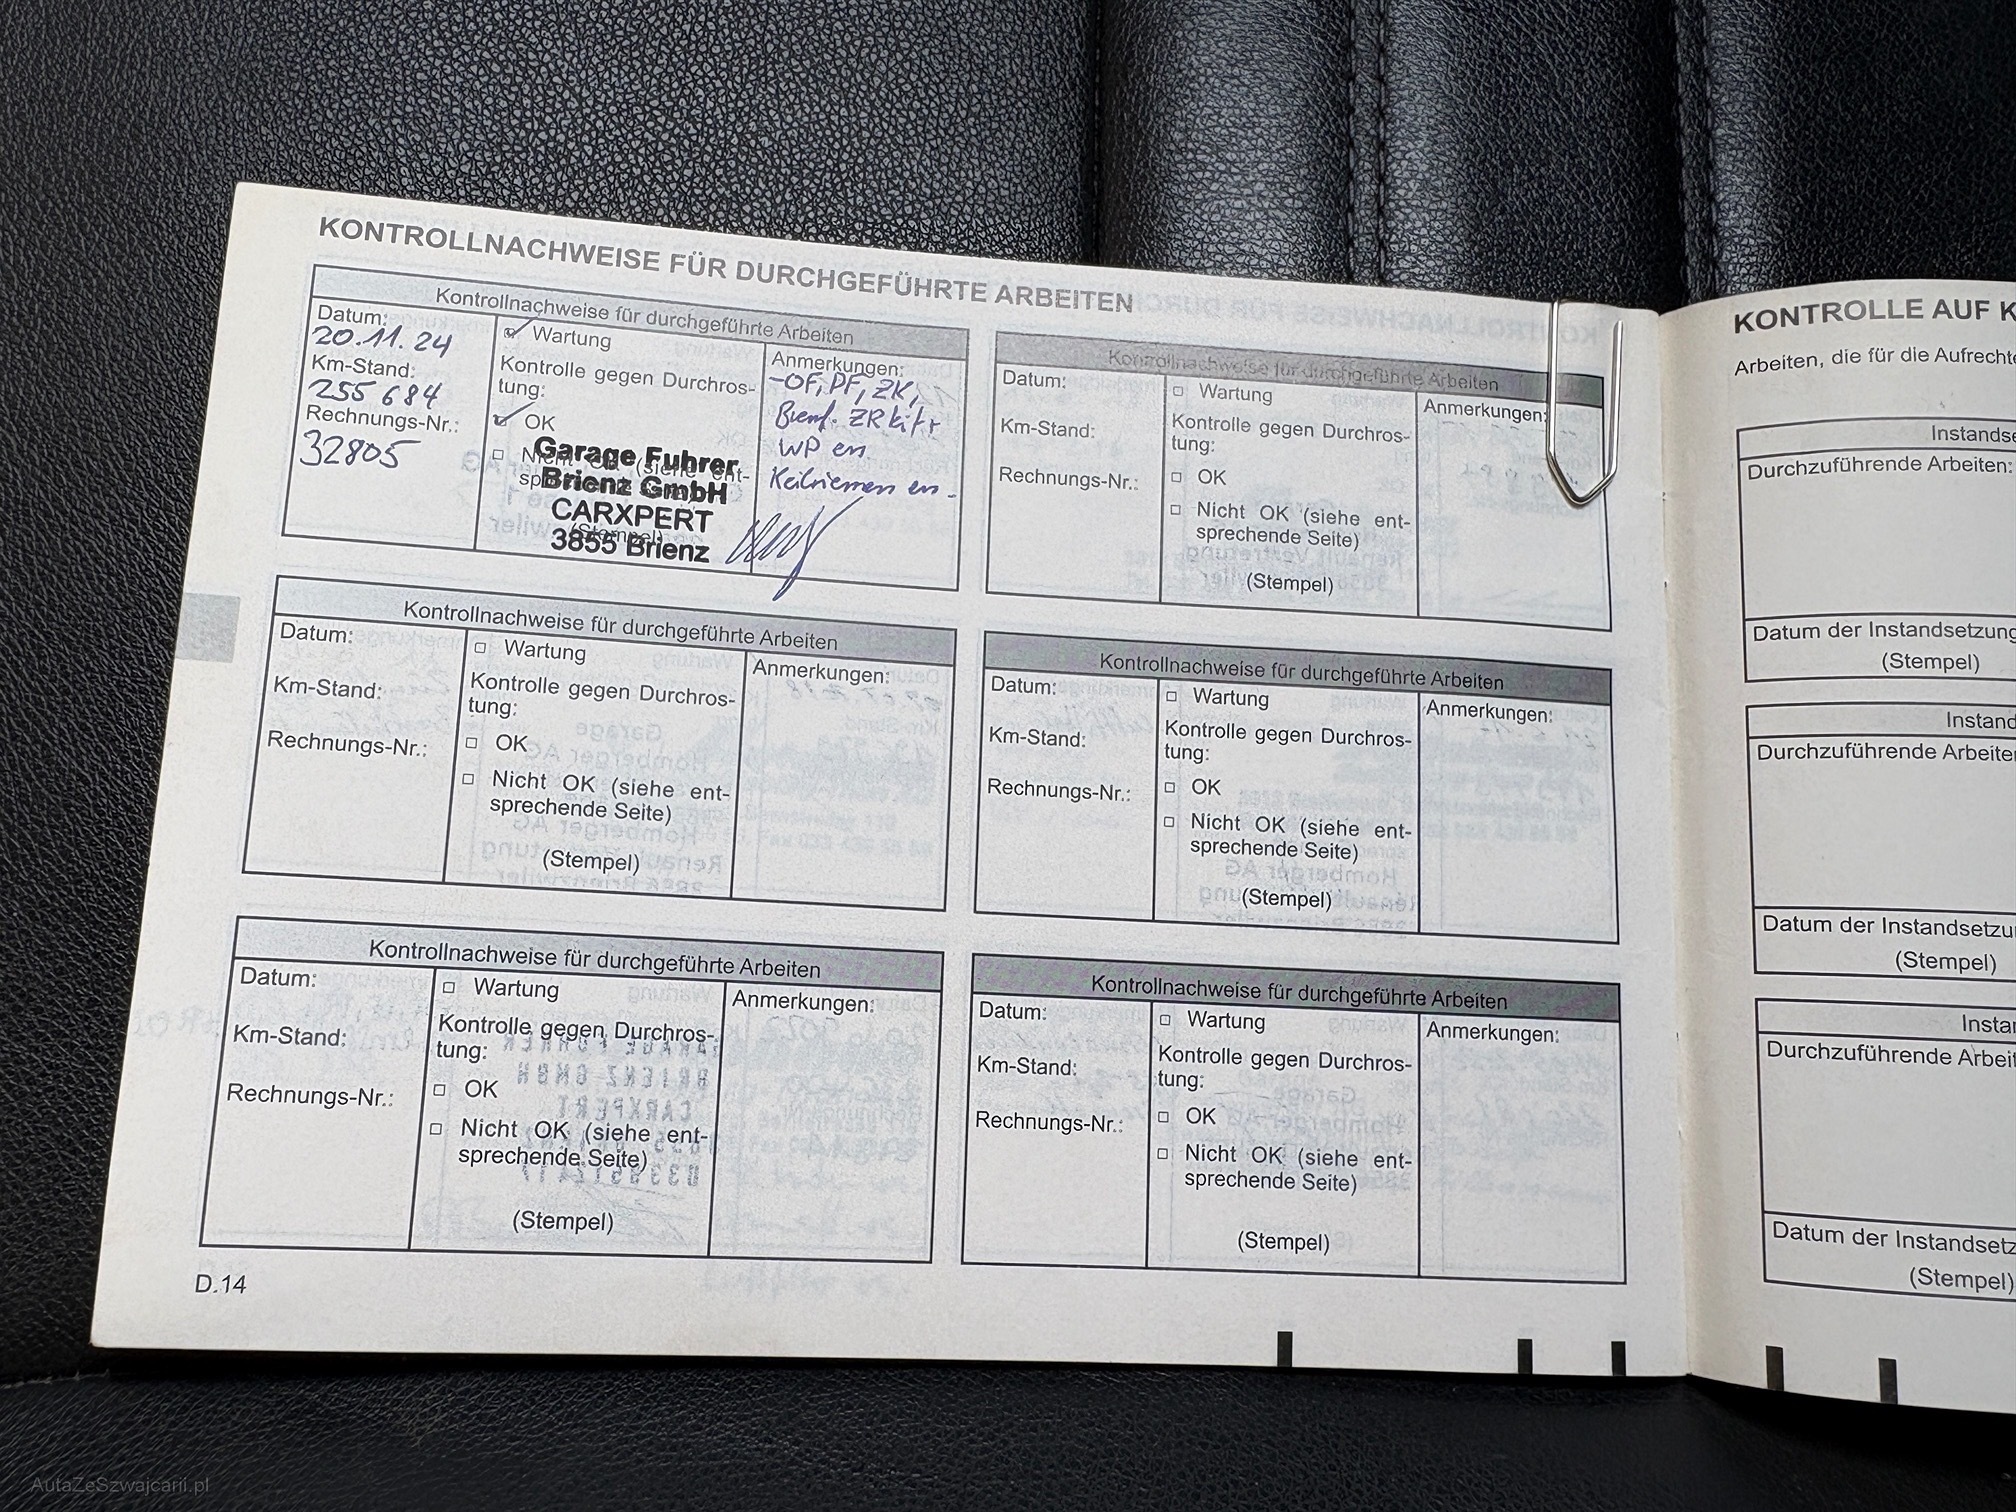 KONTROLLNACHWEISE FÜR DURCHGEFÜHRTE ARBEITEN
Kontrollnachweise für durchgeführte Arbeiten
Datum:
20.11.24
Km-Stand:
255 684
Rechnungs-Nr.:
32805
Wartung
Kontrolle gegen Durchros-
tung:
OK
Nicht OK (siehe ent-
sprechende Seite)
(Stempel)
Garage Fuhrer
Brienz GmbH
CARXPERT
3855 Brienz
Anmerkungen:
-OF, PF, ZK,
ZR kit +
WP en.
Keilriemen en.
Kontrollnachweise für durchgeführte Arbeiten
Datum:
Km-Stand:
Rechnungs-Nr.:
Wartung
Kontrolle gegen Durchros-
tung:
OK
Nicht OK (siehe ent-
sprechende Seite)
(Stempel)
Anmerkungen:
Kontrollnachweise für durchgeführte Arbeiten
Datum:
Km-Stand:
Rechnungs-Nr.:
Wartung
Kontrolle gegen Durchros-
tung:
OK
Nicht OK (siehe ent-
sprechende Seite)
(Stempel)
Anmerkungen:
Kontrollnachweise für durchgeführte Arbeiten
Datum:
Km-Stand:
Rechnungs-Nr.:
Wartung
Kontrolle gegen Durchros-
tung:
OK
Nicht OK (siehe ent-
sprechende Seite)
(Stempel)
Anmerkungen:
Kontrollnachweise für durchgeführte Arbeiten
Datum:
Km-Stand:
Rechnungs-Nr.:
Wartung
Kontrolle gegen Durchros-
tung:
OK
Nicht OK (siehe ent-
sprechende Seite)
(Stempel)
Anmerkungen:
Kontrollnachweise für durchgeführte Arbeiten
Datum:
Km-Stand:
Rechnungs-Nr.:
Wartung
Kontrolle gegen Durchros-
tung:
OK
Nicht OK (siehe ent-
sprechende Seite)
(Stempel)
Anmerkungen:
D.14
KONTROLLE AUF K
Arbeiten, die für die Aufrecht
Instandse
Durchzuführende Arbeiten:
Datum der Instandsetzung
(Stempel)
Instand
Durchzuführende Arbeite
Datum der Instandsetzu
(Stempel)
Insta
Durchzuführende Arbei
Datum der Instandsetz
(Stempel)
AutaZeSzwajcarii.pl